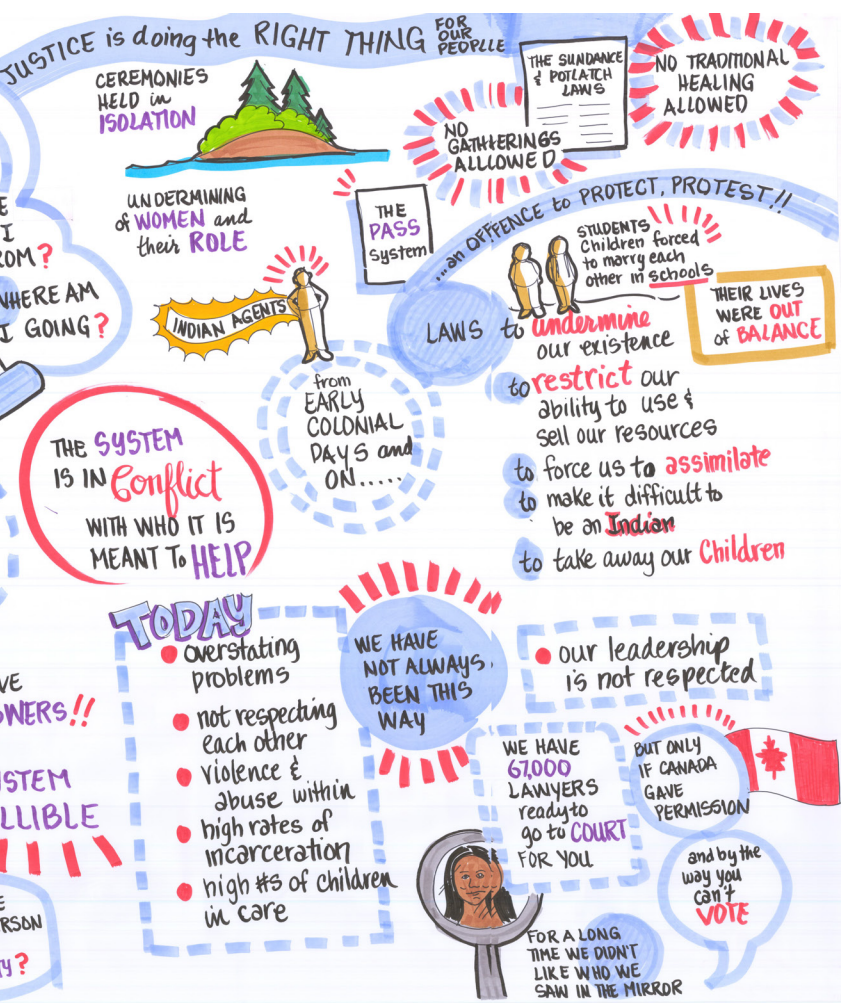 JUSTICE is doing the RIGHT THING FOR
OUR
PEOPLLE
CEREMONIES
HELD in
ISOLATION
THE SUNDANCE
& POTLATCH
LAWS
NO TRADITIONAL
HEALING
ALLOWED
NO
GATHERINGS
ALLLOWED
UNDERMINING
of WOMEN and
their ROLE
THE
PASS
system
...an OFFFENCE to PROTECT, PROTEST!!
STUDENTS
Children forced
to marry each
other in schools
THEIR LIVES
WERE OUT
of BALANCE
I
ROM?
WHERE AM
I GOING?
INDIAN AGENTS
LAWS to undermine
our existence
to restrict our
ability to use &
sell our resources
to force us to assimilate
to make it difficult to
be an Indian
to take away our Children
from
EARLY
COLONIAL
DAYS and
ON.....
THE SYSTEM
IS IN Conflict
WITH WHO IT IS
MEANT To HELP
TODAY
overstating
problems
not respecting
each other
violence &
abuse within
high rates of
incarceration
high #s of children
in care
WE HAVE
NOT ALWAYS
BEEN THIS
WAY
our leadership
is not respected
VE
WERS!!
STEM
LLIBLE
E
RSON
TY?
WE HAVE
67,000
LAWYERS
ready to
go to COURT
FOR YOU
BUT ONLY
IF CANADA
GAVE
PERMISSION
and by the
way you
can't
VOTE
FOR A LONG
TIME WE DIDN'T
LIKE WHO WE
SAW IN THE MIRROR